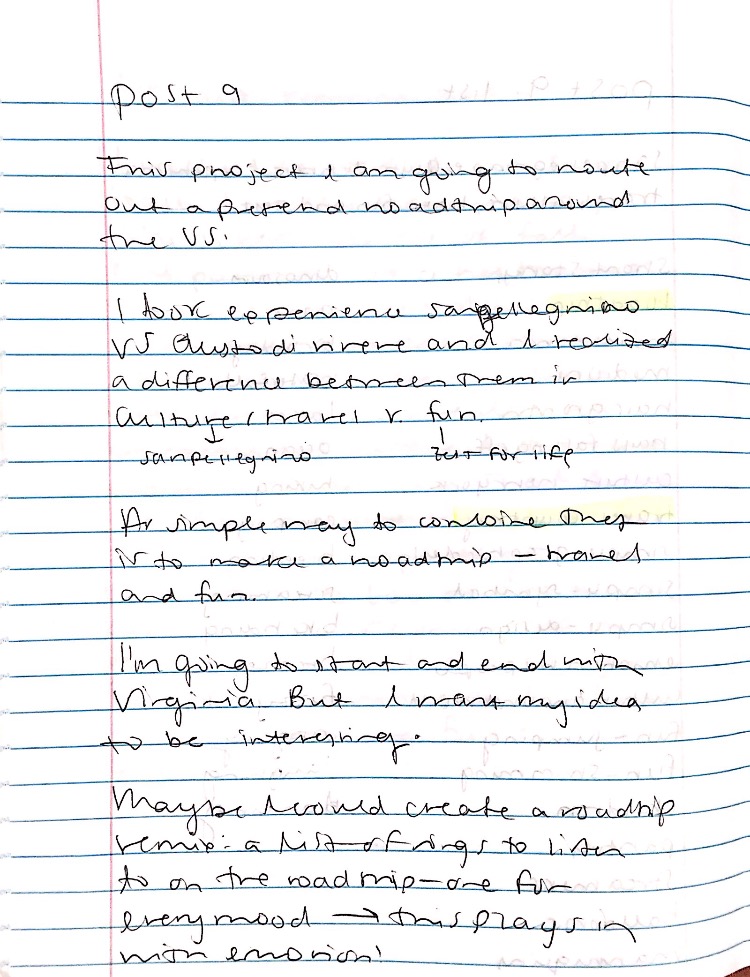 Post 9
This project I am going to route
out a pretend roadtrip around
the US.
I took experience sanpellegrino
VS Gusto di vivere and I realized
a difference between them is
culture / travel v. fun.
sanpellegrino zest for life
A simple way to combine they
is to make a roadtrip – travel
and fun.
I'm going to start and end with
Virginia. But I want my idea
to be interesting.
Maybe I could create a roadtrip
remix: a list of songs to listen
to on the roadtrip – one for
every mood → this plays in
with emotion!